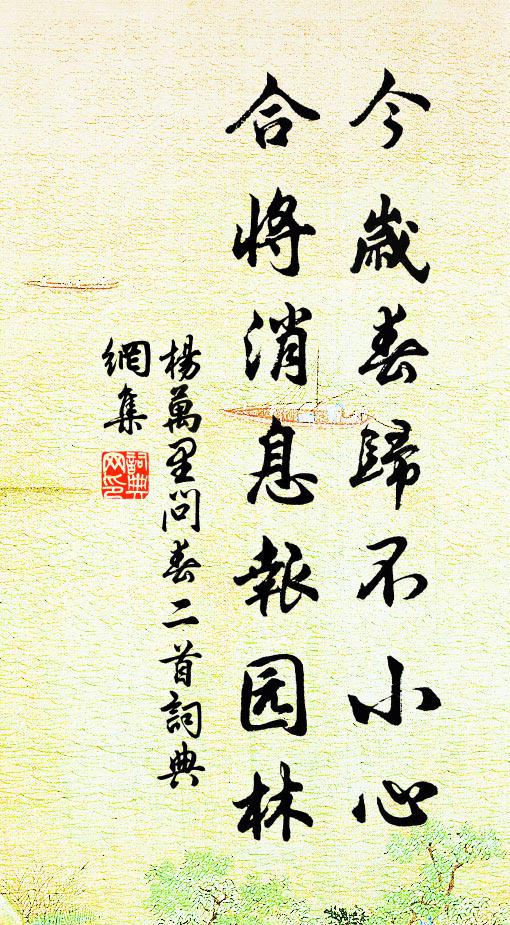 今歲春歸不小心
合將消息報园林
楊萬里问春二首詞典
網集
詞典
网印